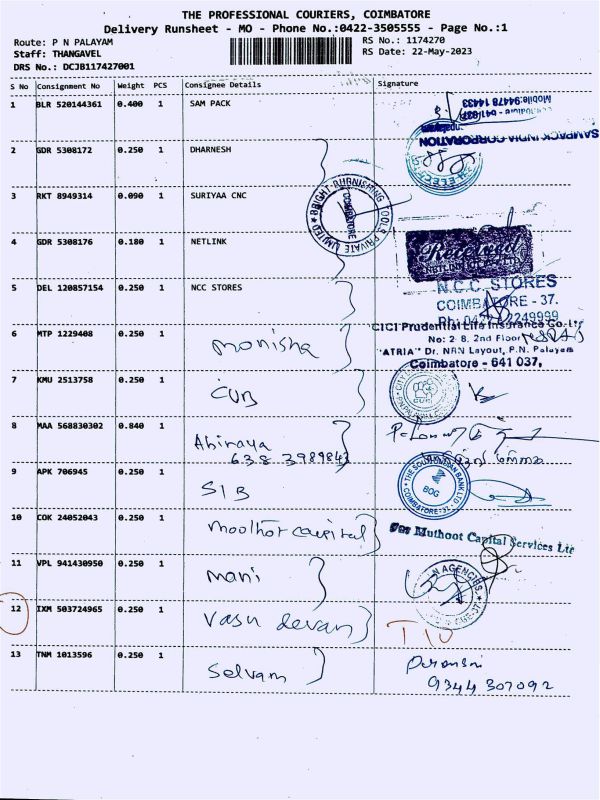 THE PROFESSIONAL COURIERS, COIMBATORE
Delivery Runsheet - MO - Phone No.:0422-3505555 - Page No.:1
Route: P N PALAYAM
RS No.: 1174270
Staff: THANGAVEL
RS Date: 22-May-2023
DRS No.: DCJB117427001
S No Consignment No Weight PCS Consignee Details Signature
1 BLR 520144361 0.400 1 SAM PACK
Mobile:94478 14433
SAMPACK INDIA CORPORATION
2 GDR 5308172 0.250 1 DHARNESH
3 RKT 8949314 0.090 1 SURIYAA CNC
BRIGHT BURNISHING TOOLS PRIVATE LIMITED
COIMBATORE
4 GDR 5308176 0.180 1 NETLINK
Received
5 DEL 120857154 0.250 1 NCC STORES
N.C.C. STORES
COIMBATORE - 37.
Ph: 0422 2249999
6 MTP 1229408 0.250 1 Monisha
CICI Prudential Life Insurance Co. Ltd
No: 2-B. 2nd Floor
"ATRIA" Dr. NRN Layout, P.N. Palayam
Coimbatore - 641 037,
7 KMU 2513758 0.250 1 CUB
8 MAA 568830302 0.840 1 Abinaya
638 3989843
9 APK 706945 0.250 1 SIB
THE SOUTH INDIAN BANK LTD
BOG
COIMBATORE-37.
10 COK 24052043 0.250 1 Moothot capital
For Muthoot Capital Services Ltd
11 VPL 941430950 0.250 1 Mani
N AGENCIES.
12 IXM 503724965 0.250 1 Vasu devan
13 TNM 1013596 0.250 1 Selvam
9344 307092